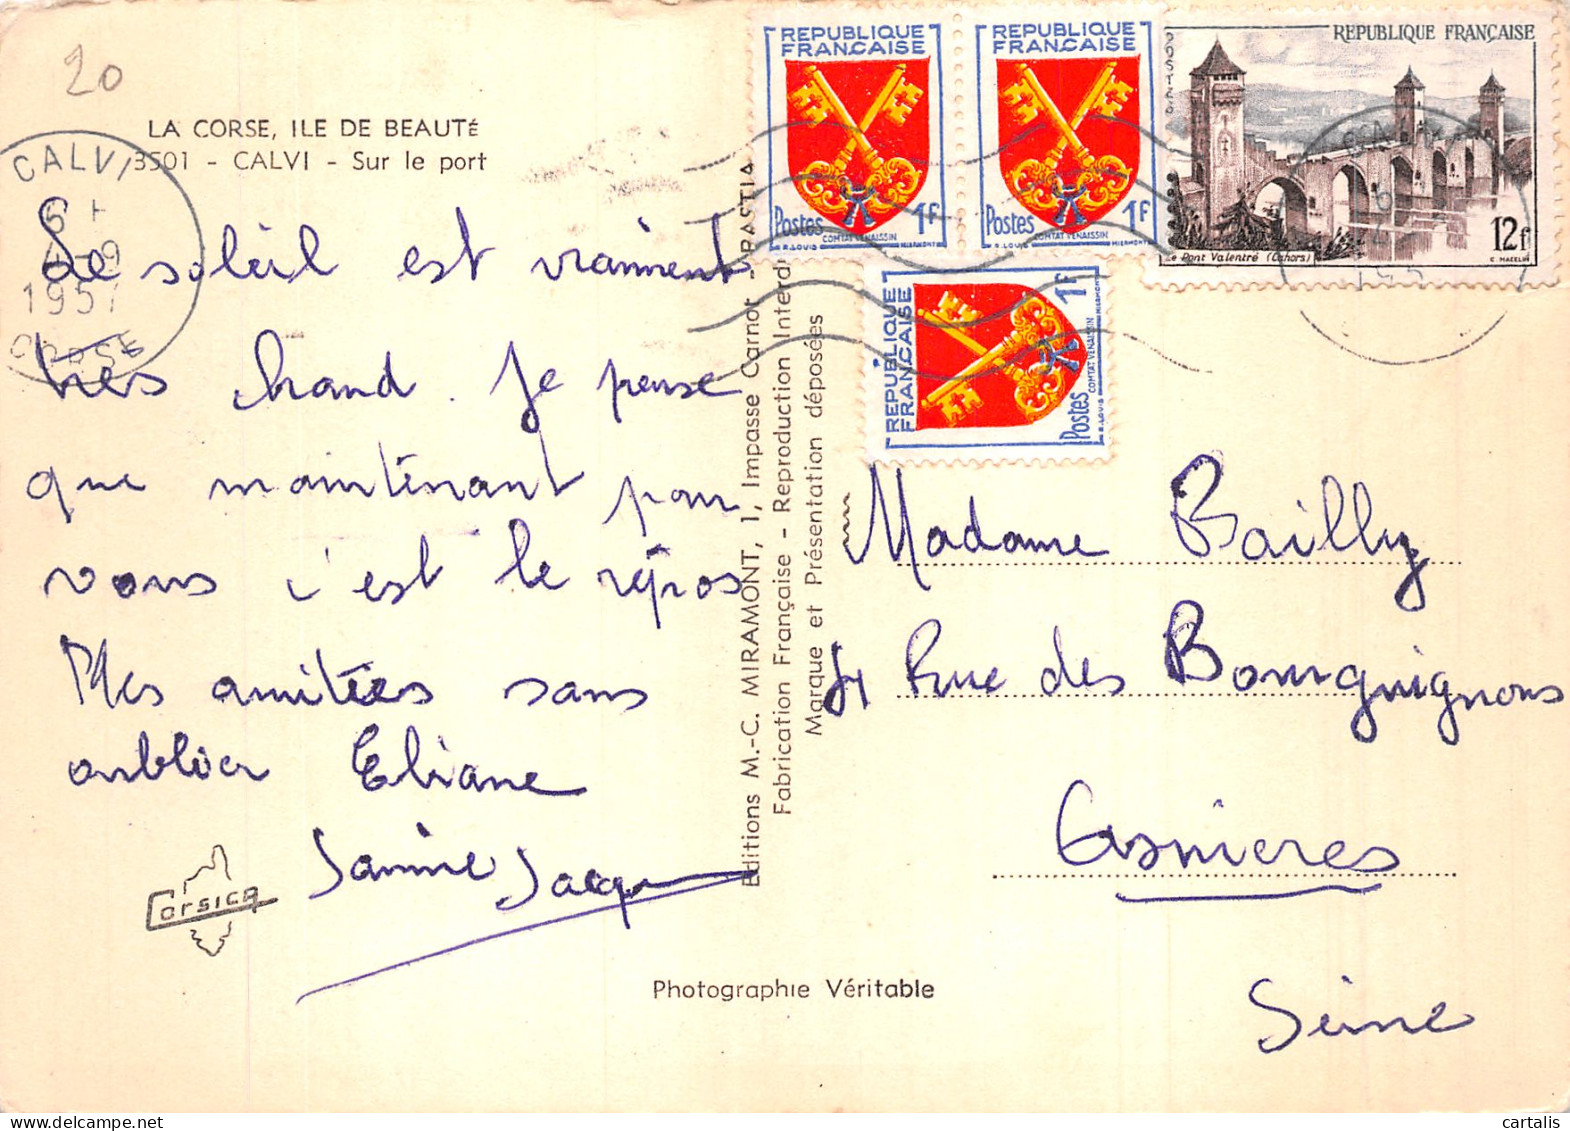 20
LA CORSE, ILE DE BEAUTÉ
3501 - CALVI - Sur le port
CALVI
1957
CORSE
Le soleil est vraiment
très chaud. Je pense
que maintenant pour
vous c'est le repos
Mes amitiés sans
oublier Eliane
Janine Jacq
Corsica
Photographie Véritable
Editions M.-C. MIRAMONT, 1, Impasse Carnot - BASTIA
Fabrication Française - Reproduction Interdi
Marque et Présentation déposées
REPUBLIQUE
FRANCAISE
Postes 1F
COMTAT VENAISSIN
R. LOUIS MIERMONT
REPUBLIQUE
FRANCAISE
Postes 1F
COMTAT VENAISSIN
R. LOUIS MIERMONT
REPUBLIQUE FRANÇAISE
POSTES
12f
Le Pont Valentré (Cahors)
C. MAZELIN
REPUBLIQUE
FRANCAISE
Postes 1F
COMTAT VENAISSIN
R. LOUIS MIERMONT
Madame Bailly
Rue des Bourguignons
Asnieres
Seine
cartalis